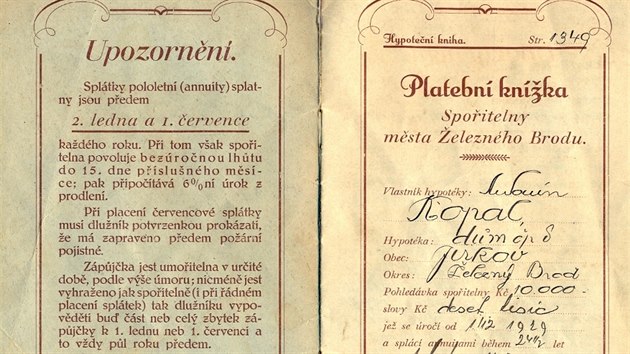 Upozornění.
Splátky pololetní (annuity) splat-
ny jsou předem
2. ledna a 1. července
každého roku. Při tom však spoři-
telna povoluje bezúročnou lhůtu
do 15. dne příslušného měsí-
ce; pak připočítává 6%ní úrok z
prodlení.
Při placení červencové splátky
musí dlužník potvrzenkou prokázati,
že má zapraveno předem požární
pojistné.
Zápůjčka jest umořitelna v určité
době, podle výše úmoru; nicméně jest
vyhraženo jak spořitelně (i při řádném
placení splátek) tak dlužníku vypo-
věděti buď část neb celý zbytek zá-
půjčky k 1. lednu neb 1. červenci a
to vždy půl roku předem.
Hypoteční kniha. Str. 1349
Platební knížka
Spořitelny
města Železného Brodu.
Vlastník hypotéky:
Kopal,
Hypotéka: dům čp 8
Obec: Jirkov
Okres: Železný Brod
Pohledávka spořitelny Kč 10.000.-
slovy Kč deset tisíc
jež se úročí od 1/12 1929
a splácí annuitami během let